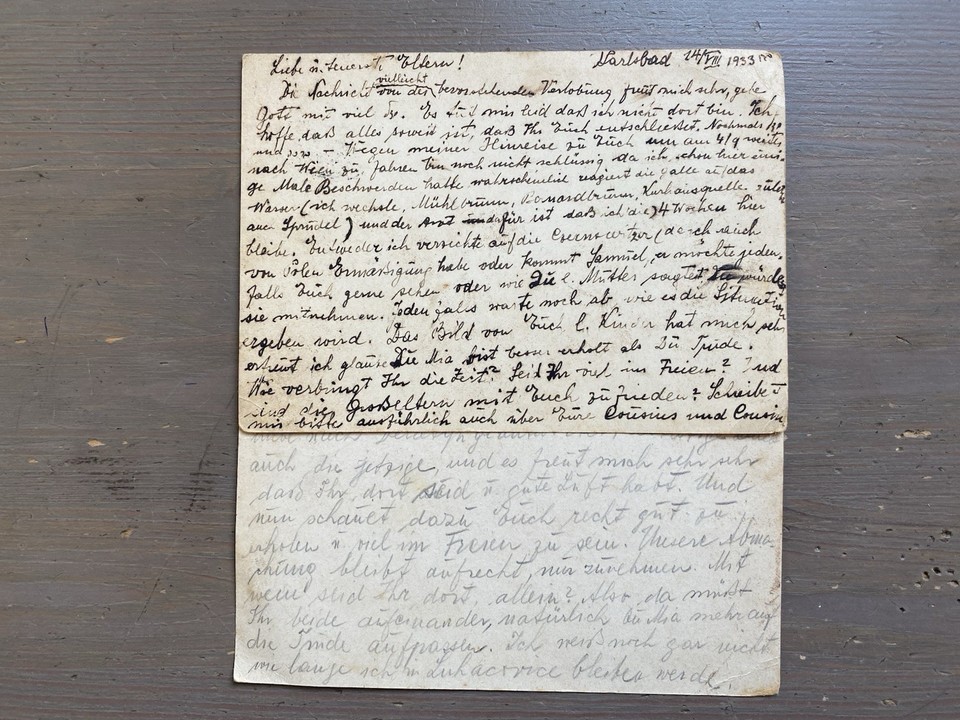 Liebe u. teuerste Eltern! Karlsbad 14/VIII 1933
vielleicht
Die Nachricht von der bevorstehenden Verlobung freut mich sehr, gebe
Gott mit viel Es tut mir leid daß ich nicht dort bin. Ich
hoffe daß alles soweit ist, daß Ihr Euch entschliesset. Nochmals
und – Wegen meiner Hinreise zu Euch um am 4/9
nach Wien zu fahren bin noch nicht schlüssig da ich schon hier eini-
ge Male Beschwerden hatte wahrscheinlich reagiert die Galle auf das
Wasser (ich wechsle, Mühlbrunn, Kurhausquelle
auch Sprudel) und der Arzt dafür ist daß ich die 4 Wochen hier
bleibe. Entweder ich verzichte auf die Czernowitzer (doch auch
von Polen Ermäßigung habe oder kommt Samuel, er möchte jeden-
falls Euch gerne sehen oder wie Du l. Mutter sagtest Du würdest
sie mitnehmen. Jedenfalls warte noch ab, wie es die Situation
ergeben wird. Das Bild von Euch l. Kinder hat mich sehr
erfreut ich glaube Du Mia bist besser erholt als Du Trude.
Wie verbringt Ihr die Zeit? Seid Ihr viel im Freien? Und
sind die Großeltern mit Euch zufrieden? Schreibet
mir bitte ausführlich auch über Eure Cousins und Cousin
auch die jetzige, und es freut mich sehr sehr
daß Ihr dort seid u. gute Luft habt. Und
nun schauet dazu Euch recht gut zu
erholen u. viel im Freien zu sein. Unsere Abma-
chung bleibt aufrecht, nur zunehmen. Mit
wem seid Ihr dort, allein? Also da müßt
Ihr beide aufeinander, natürlich Du Mia mehr auf
die Trude aufpassen. Ich weiß noch gar nicht
wie lange ich in Luhacovice bleiben werde.